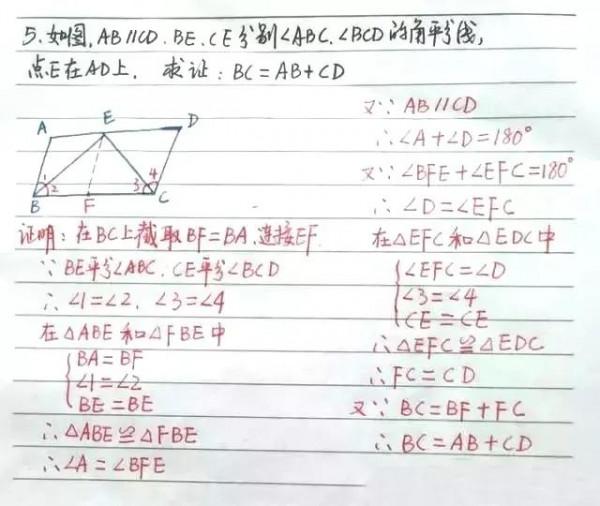 5.如图,AB//CD.BE、CE分别∠ABC、∠BCD的角平分线,
点E在AD上, 求证:BC=AB+CD
A
E
D
1
2
3
4
B
F
C
证明:在BC上截取BF=BA.连接EF.
∵BE平分∠ABC.CE平分∠BCD
∴∠1=∠2.∠3=∠4
在△ABE和△FBE中
BA=BF
∠1=∠2
BE=BE
∴△ABE≌△FBE
∴∠A=∠BFE
又∵AB//CD
∴∠A+∠D=180°
又∵∠BFE+∠EFC=180°
∴∠D=∠EFC
在△EFC和△EDC中
∠EFC=∠D
∠3=∠4
CE=CE
∴△EFC≌△EDC
∴FC=CD
又∵BC=BF+FC
∴BC=AB+CD